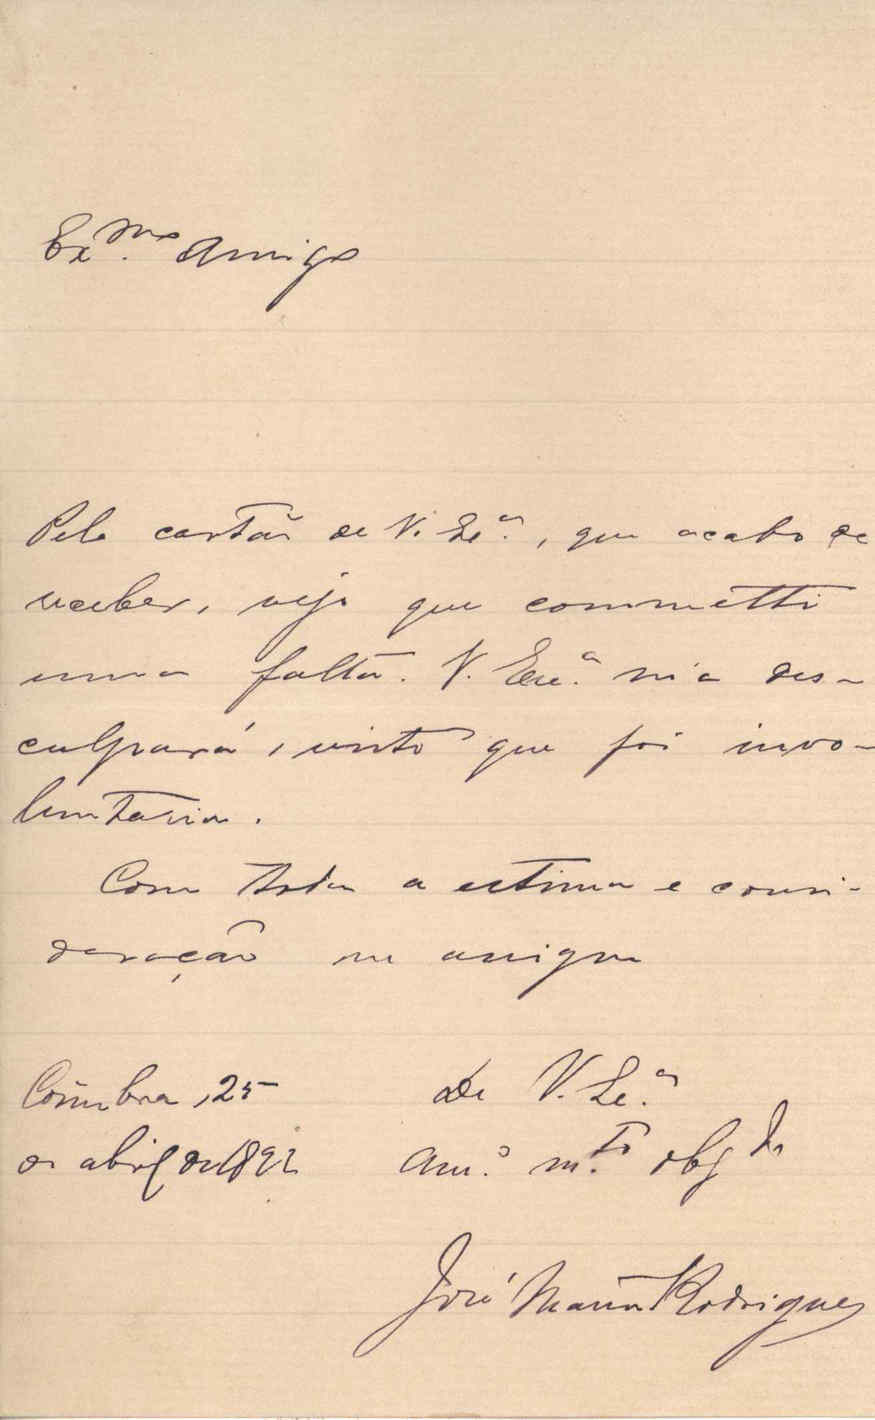 Ex.mo Amigo
Pelo cartão de V. Ex.ª, que acabo de
receber, vejo que commetti
uma falta. V. Exc.ª m'a des-
culpará, visto que foi invo-
luntaria.
Com toda a estima e consi-
deração me assigno
Coimbra, 25
de abril de 1892
De V. Ex.ª
am.º m.to obgdo
José Maria Rodrigues